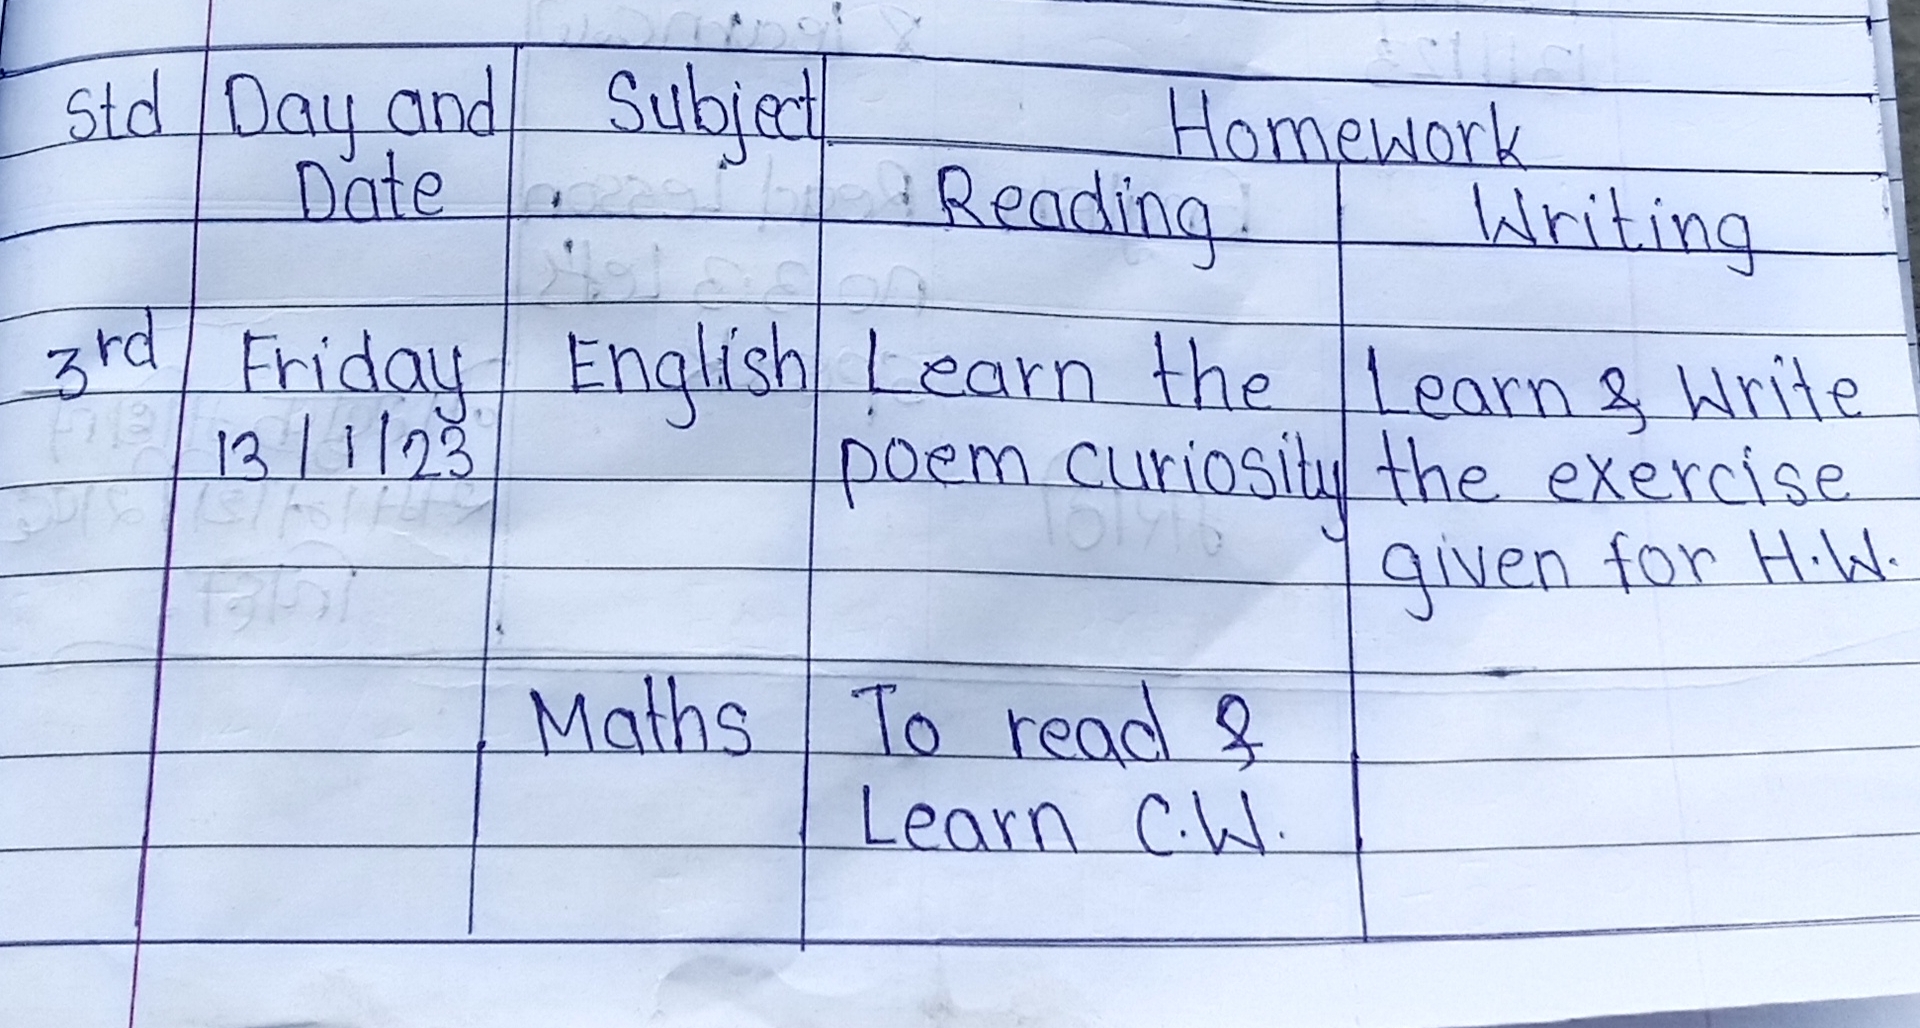 Std Day and Subject Homework
Date Reading Writing
3rd Friday English Learn the Learn & Write
13/1/23 poem curiosity the exercise
given for H.W.
Maths To read &
Learn C.W.